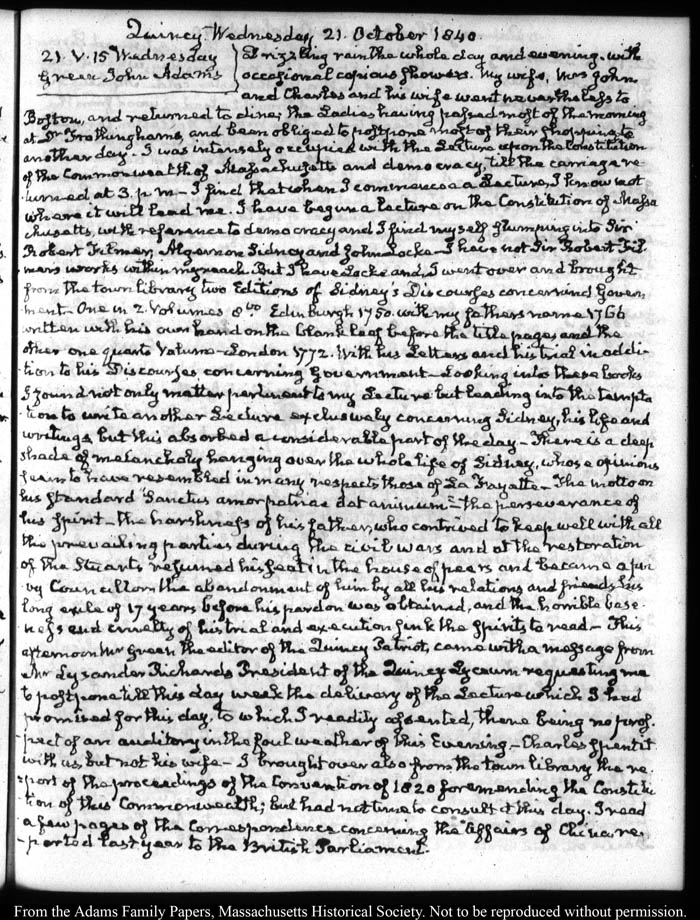 Quincy. Wednesday 21. October 1840.
21. V. 15 Wednesday
Green John Adams
Drizzling rain the whole day and evening, with
occasional copious showers. My wife, Mrs John
and Charles and his wife went nevertheless to
Boston, and returned to dine; the Ladies having passed most of the morning
at Dr Frothingham's, and been obliged to postpone most of their shopping to
another day. I was intensely occupied with the Lecture upon the Constitution
of the Commonwealth of Massachusetts and democracy, till the carriage re-
turned at 3. p.m— I find that when I commence a Lecture, I know not
where it will lead me. I have begun a lecture on the Constitution of Massa
chusetts, with reference to democracy and I find myself plumping into Sir
Robert Filmer, Algernon Sidney and John Locke— I have not Sir Robert Fil
mer's works within my reach. But I have Locke and, I went over and brought
from the town library two Editions of Sidney's Discourses concerning Govern
ment— One in 2. Volumes 8vo Edinburgh 1750. with my father's name 1766
written with his own hand on the blank leaf before the title pages and the
other one quarto Volume— London 1772. With his Letters and his trial in addi-
tion to his Discourses concerning Government— Looking into these books
I found not only matter pertinent to my Lecture but leading into the tempta
tion to write another Lecture exclusively concerning Sidney, his life and
writings, but this absorbed a considerable part of the day— There is a deep
shade of melancholy hanging over the whole life of Sidney, whose opinions
seem to have resembled in many respects those of La Fayette— The motto on
his standard "Sanctus amor patriae dat animum"— the perseverance of
his Spirit— the harshness of his father, who contrived to keep well with all
the prevailing parties during the civil wars and at the restoration
of the Stuarts resumed his seat in the house of peers and became a pri
vy Councillor, the abandonment of him by all his relations and friends, his
long exile of 17 years before his pardon was obtained, and the horrible base-
ness and cruelty of his trial and execution sink the Spirits to read— This
afternoon Mr Green the editor of the Quincy Patriot, came with a message from
Mr Lysander Richards President of the Quincy Lyceum requesting me
to postpone till this day week the delivery of the Lecture which I had
promised for this day, to which I readily assented, there being no pros-
pect of an auditory in the foul weather of this Evening— Charles spent it
with us but not his wife— I brought over also from the town library the re-
port of the proceedings of the Convention of 1820 for emending the Constitu-
tion of this Commonwealth; but had not time to consult it this day. I read
a few pages of the Correspondence concerning the Affairs of China re-
ported last year to the British Parliament.
From the Adams Family Papers, Massachusetts Historical Society. Not to be reproduced without permission.